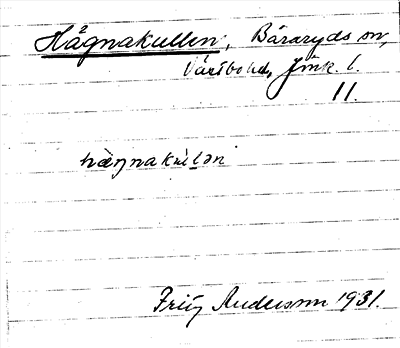 Hågnakullen, Bäraryds sn,
Västbo hd, Jönk. l.
11.
hàŋnakùlən
Fritz Andersson 1931.